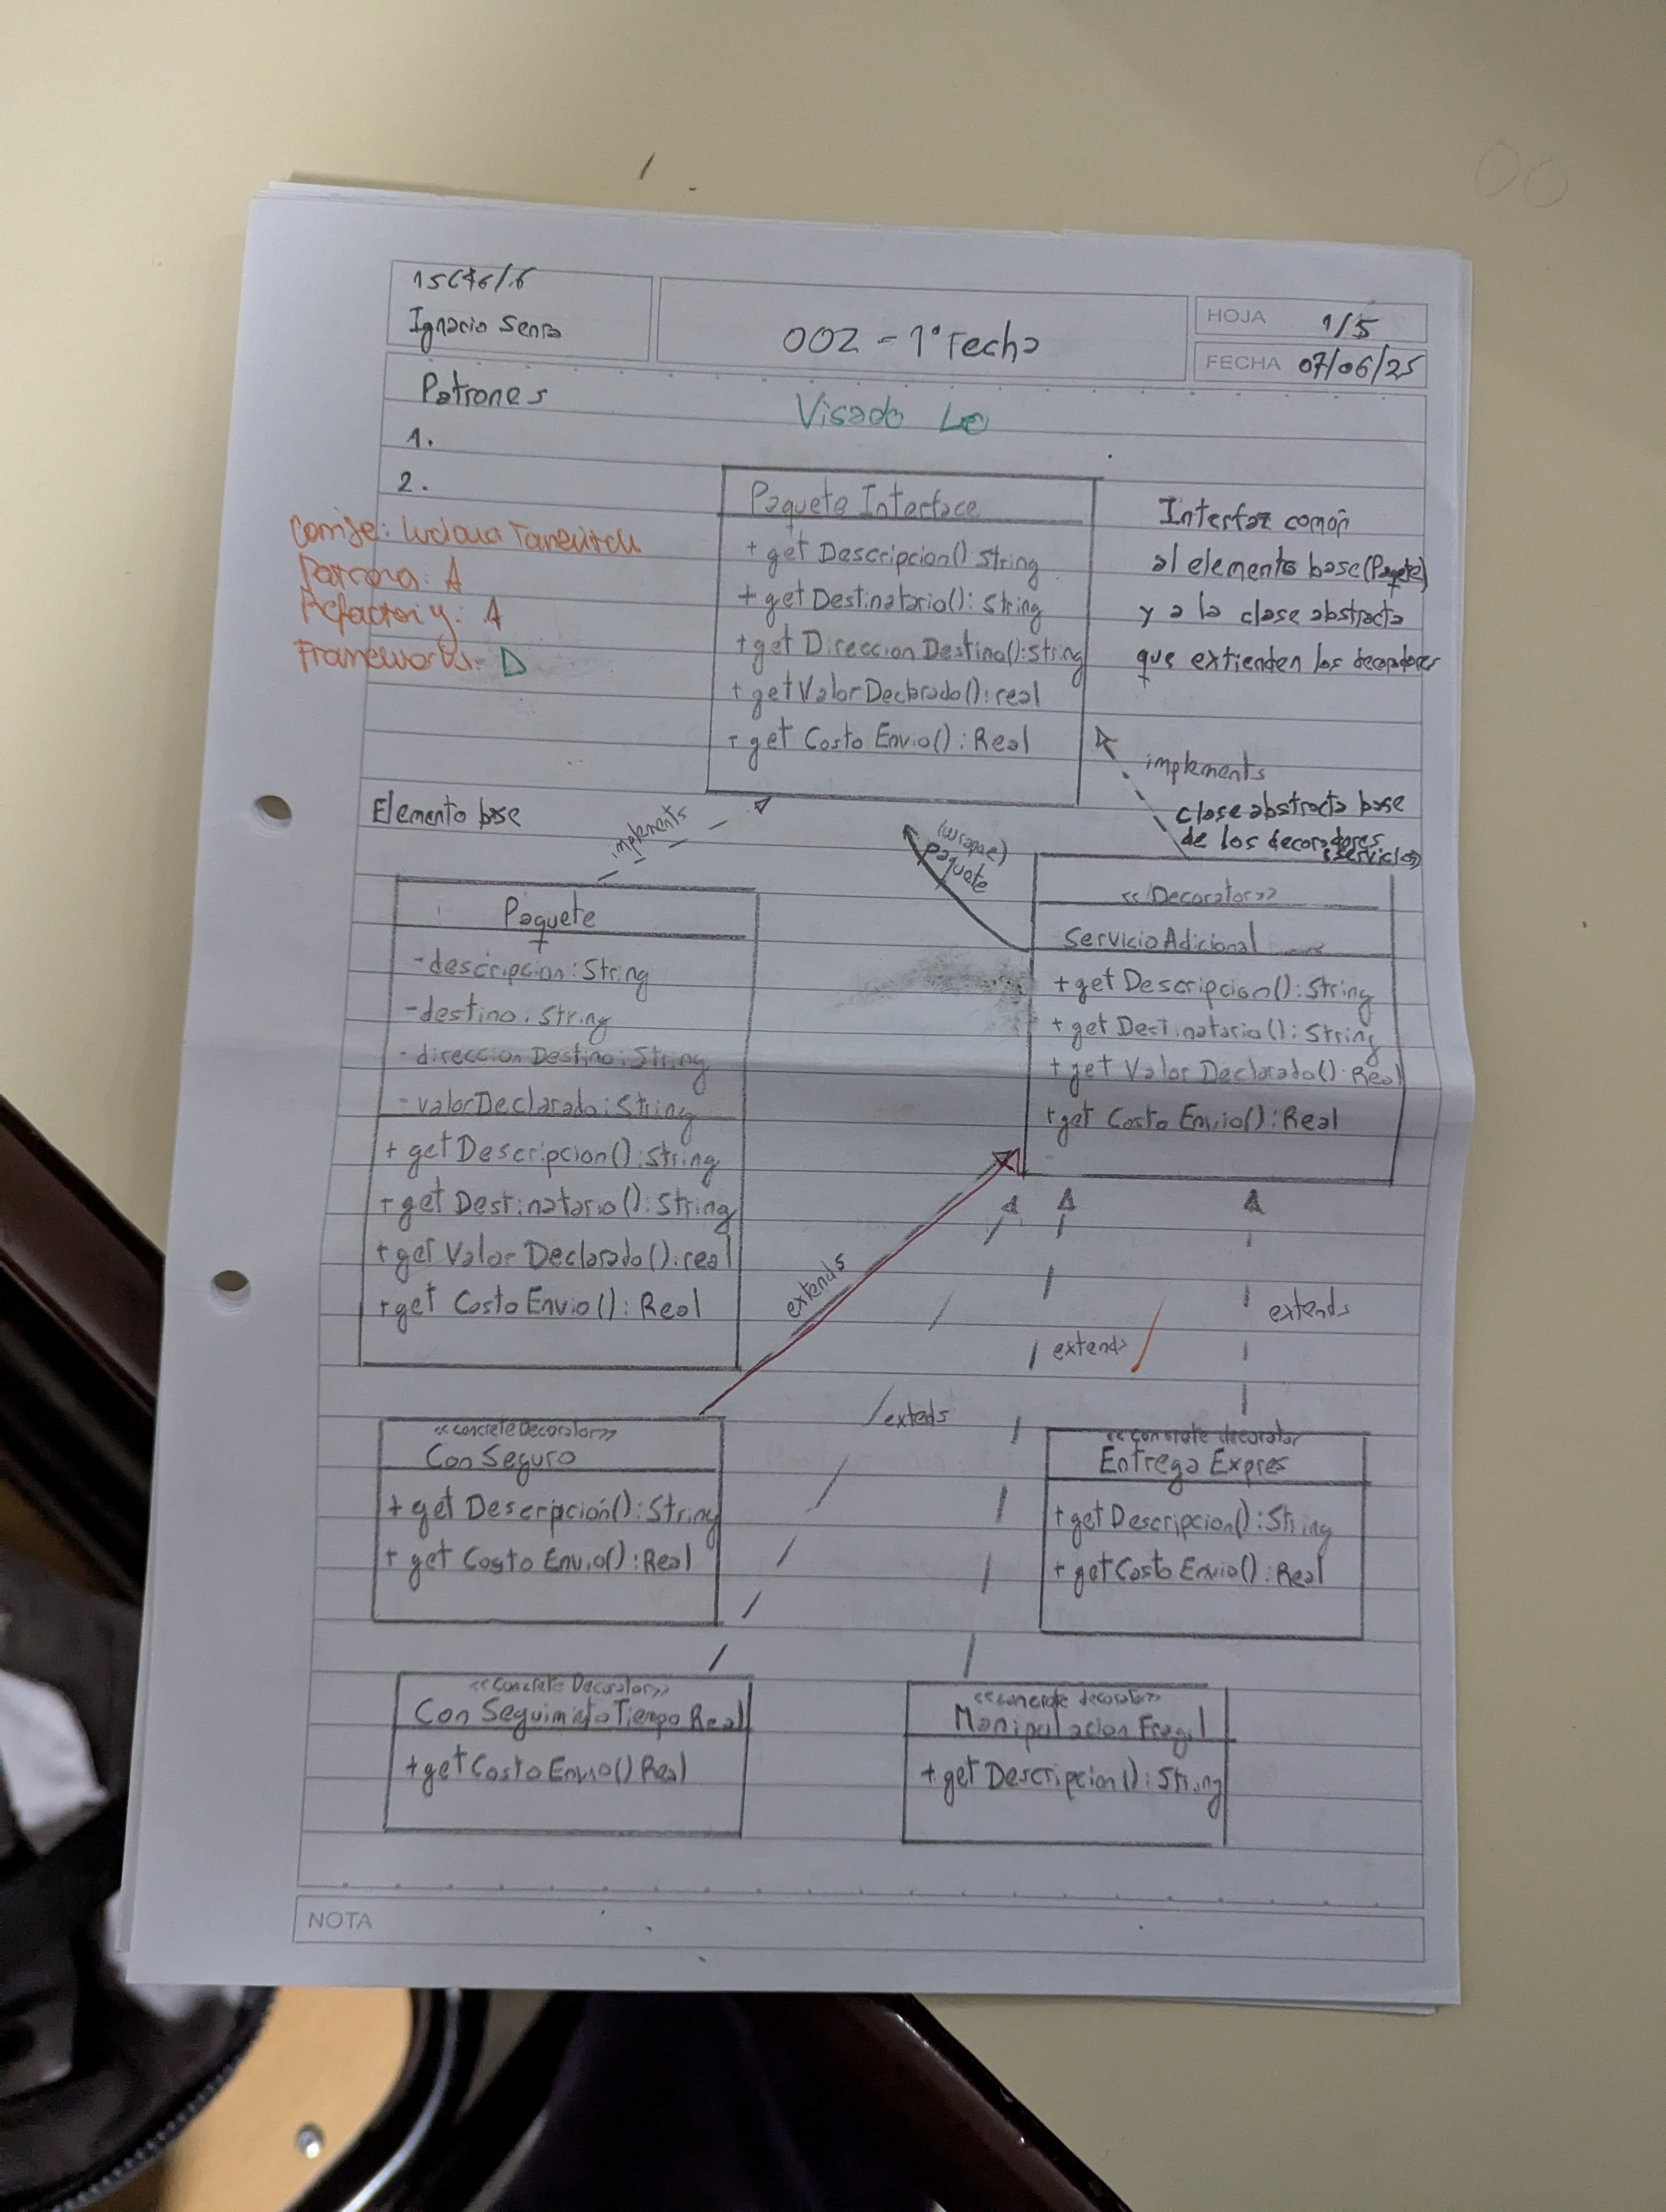 Ignacio Senra
002 - 1° Fecha
HOJA 1/5
FECHA 07/06/25
Patrones
Visado
1.
2.
Corrije: Luciana
Patrones: A
Refactoring: A
Frameworks: D
Paquete Interface
+ get Descripcion() String
+ getDestinatario(): String
+ get Direccion Destino(): String
+ getValorDeclarado(): real
+ get Costo Envio(): Real
Interfaz común
al elemento base (Paquete)
y a la clase abstracta
que extienden los decoradores
implements
clase abstracta base
de los decoradores
(servicios)
Elemento base
implements
(wrapee)
paquete
Paquete
- descripcion: String
- destino: String
- direccion Destino: String
- valorDeclarado: String
+ getDescripcion(): String
+ get Destinatario(): String
+ get Valor Declarado(): real
+ get Costo Envio(): Real
<< Decorator>>
Servicio Adicional
+ get Descripcion(): String
+ get Destinatario(): String
+ get Valor Declarado(): Real
+ get Costo Envio(): Real
extends
extends
extend>
exteds
<<concreteDecorator>>
Con Seguro
+ get Descripción(): String
+ get Costo Envio(): Real
<<concrete decorator
Entrega Expres
+ get Descripcion(): String
+ getCosto Envio(): Real
<<Concrete Decorator>>
Con Seguimieto Tiempo Real
+ getCosto Envio() Real
<<concrete decorator>>
Manipulacion Fragil
+ get Descripcion(): String
NOTA